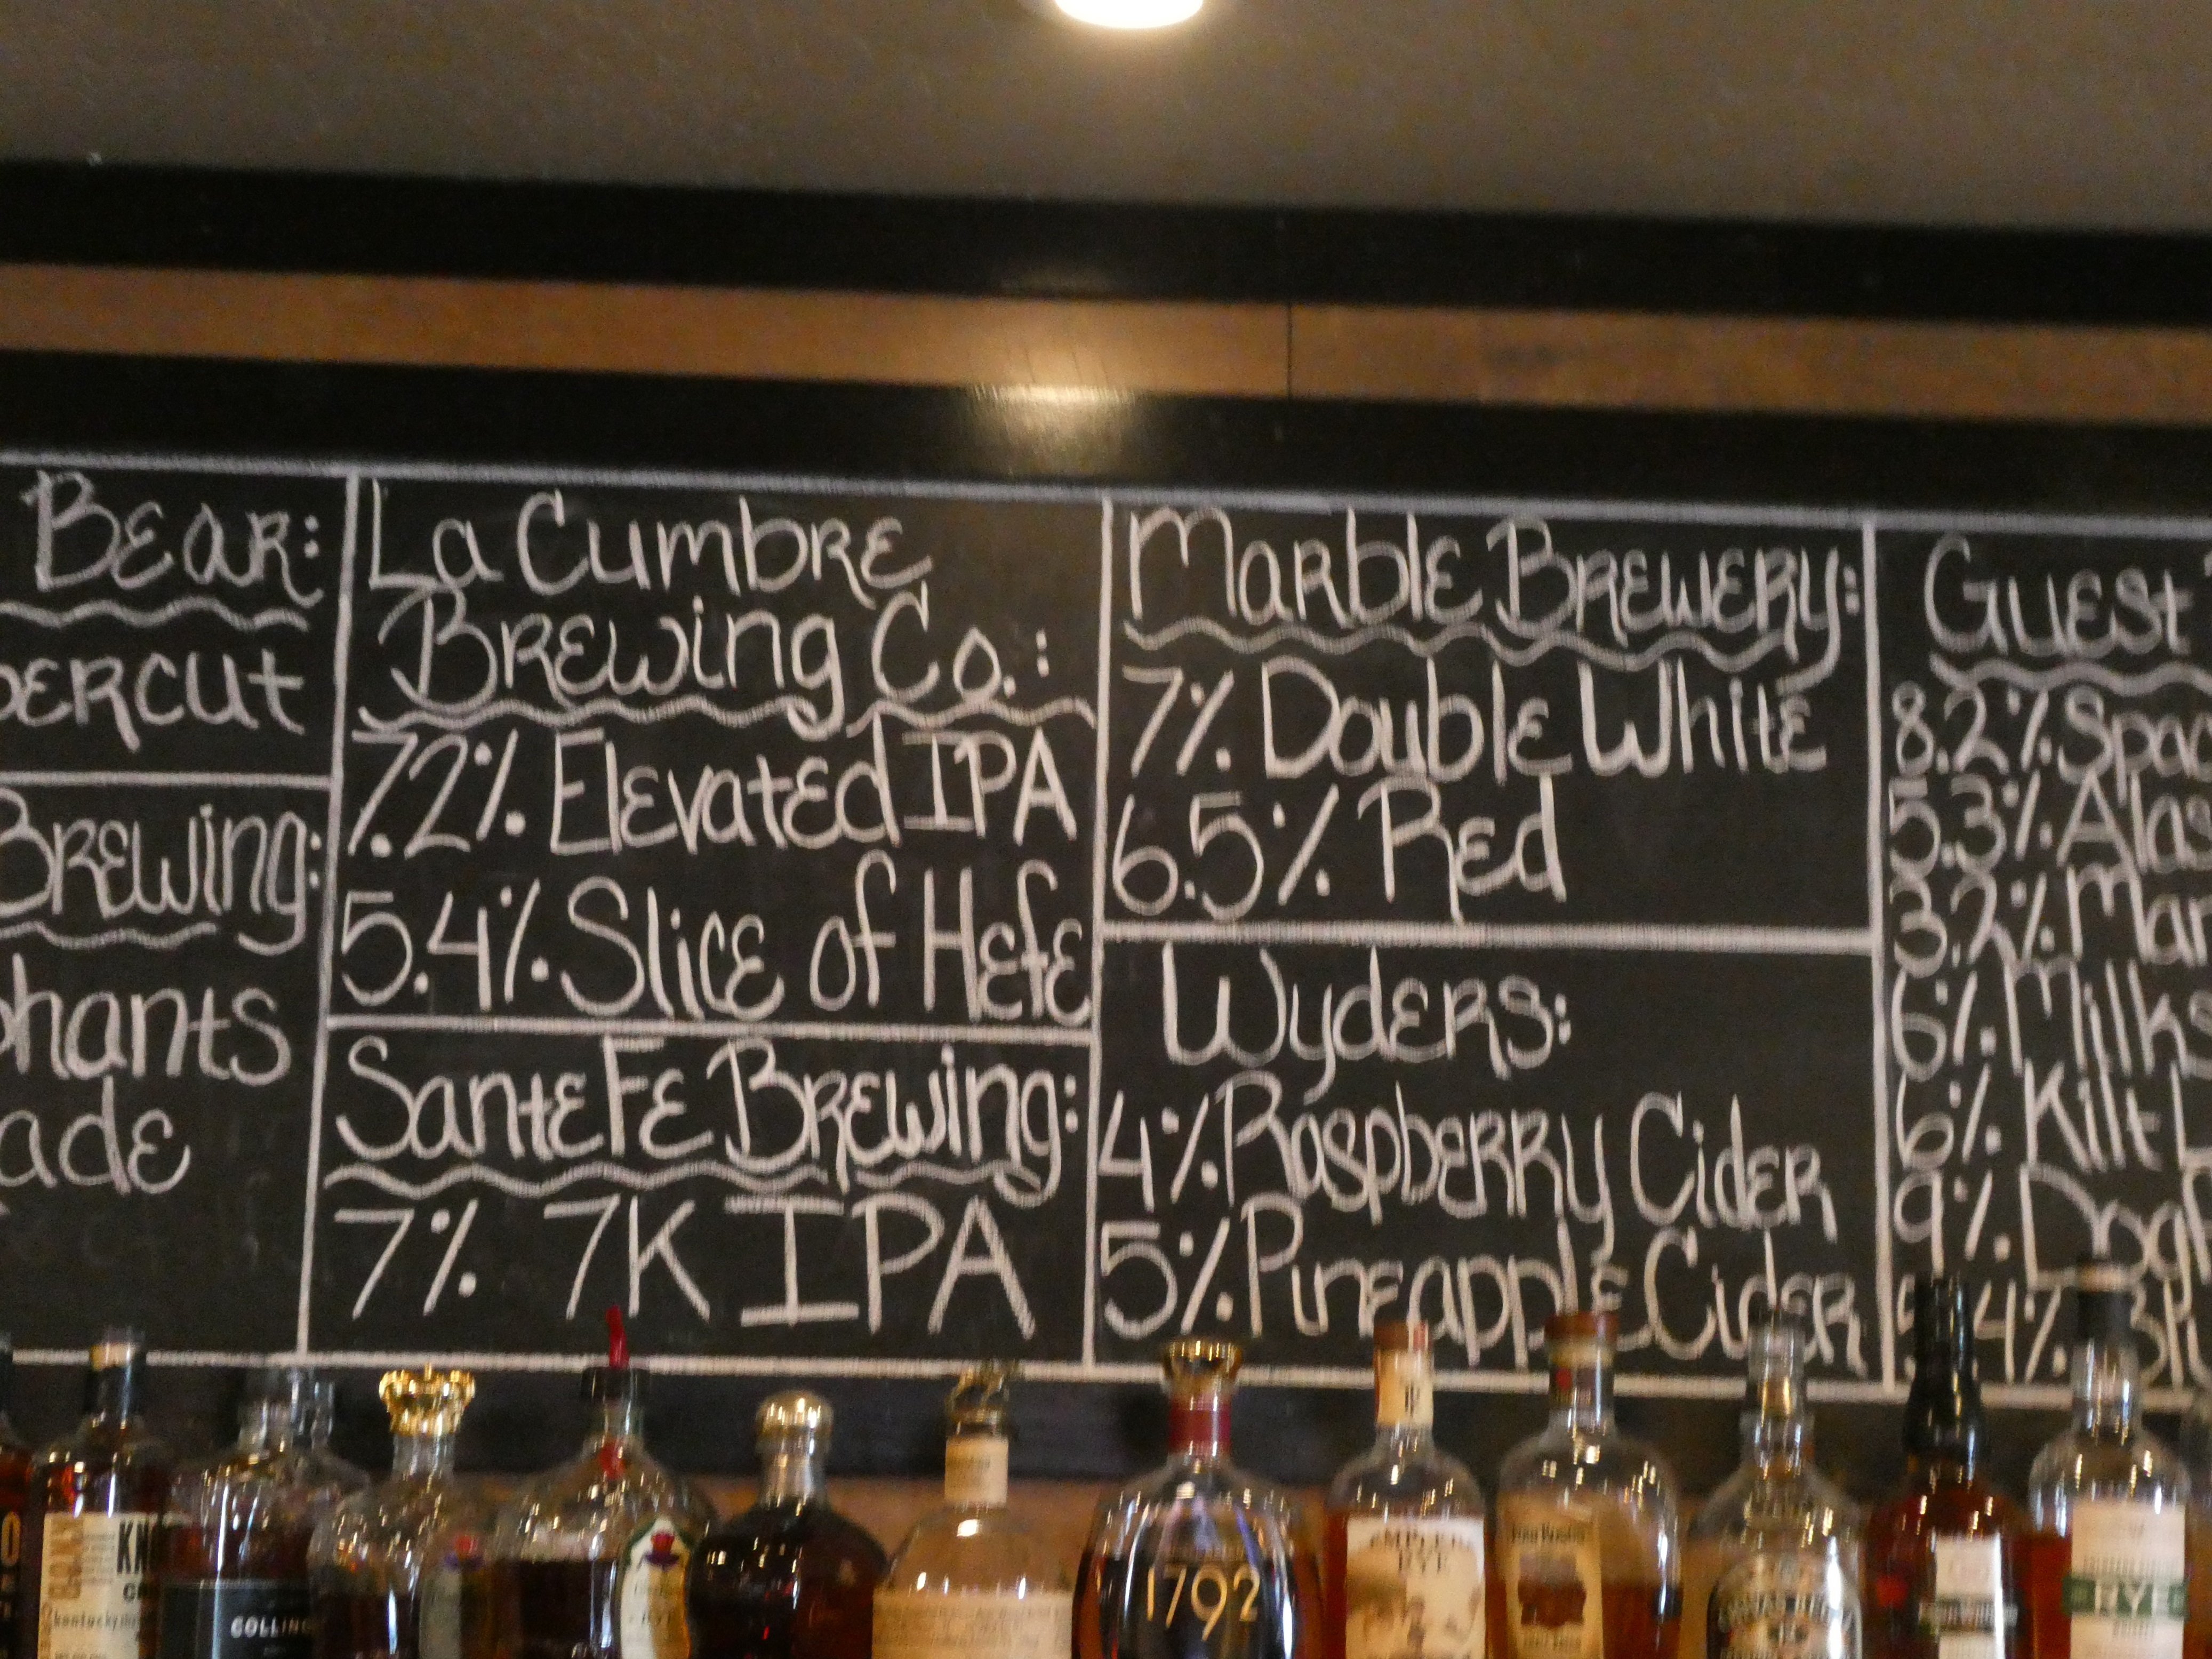 Bear:
percut
Brewing:
phants
ade
La Cumbre
Brewing Co.:
7.2% Elevated IPA
5.4% Slice of Hefe
Sante Fe Brewing:
7% 7K IPA
Marble Brewery:
7% Double White
6.5% Red
Wyders:
4% Raspberry Cider
5% Pineapple Cider
Guest
8.2% Spac
5.3% Alas
3.2% Mar
6% Milks
6% Kilt L
9% Dogf
4%
KN
COLLING
1792
RYE
RYE